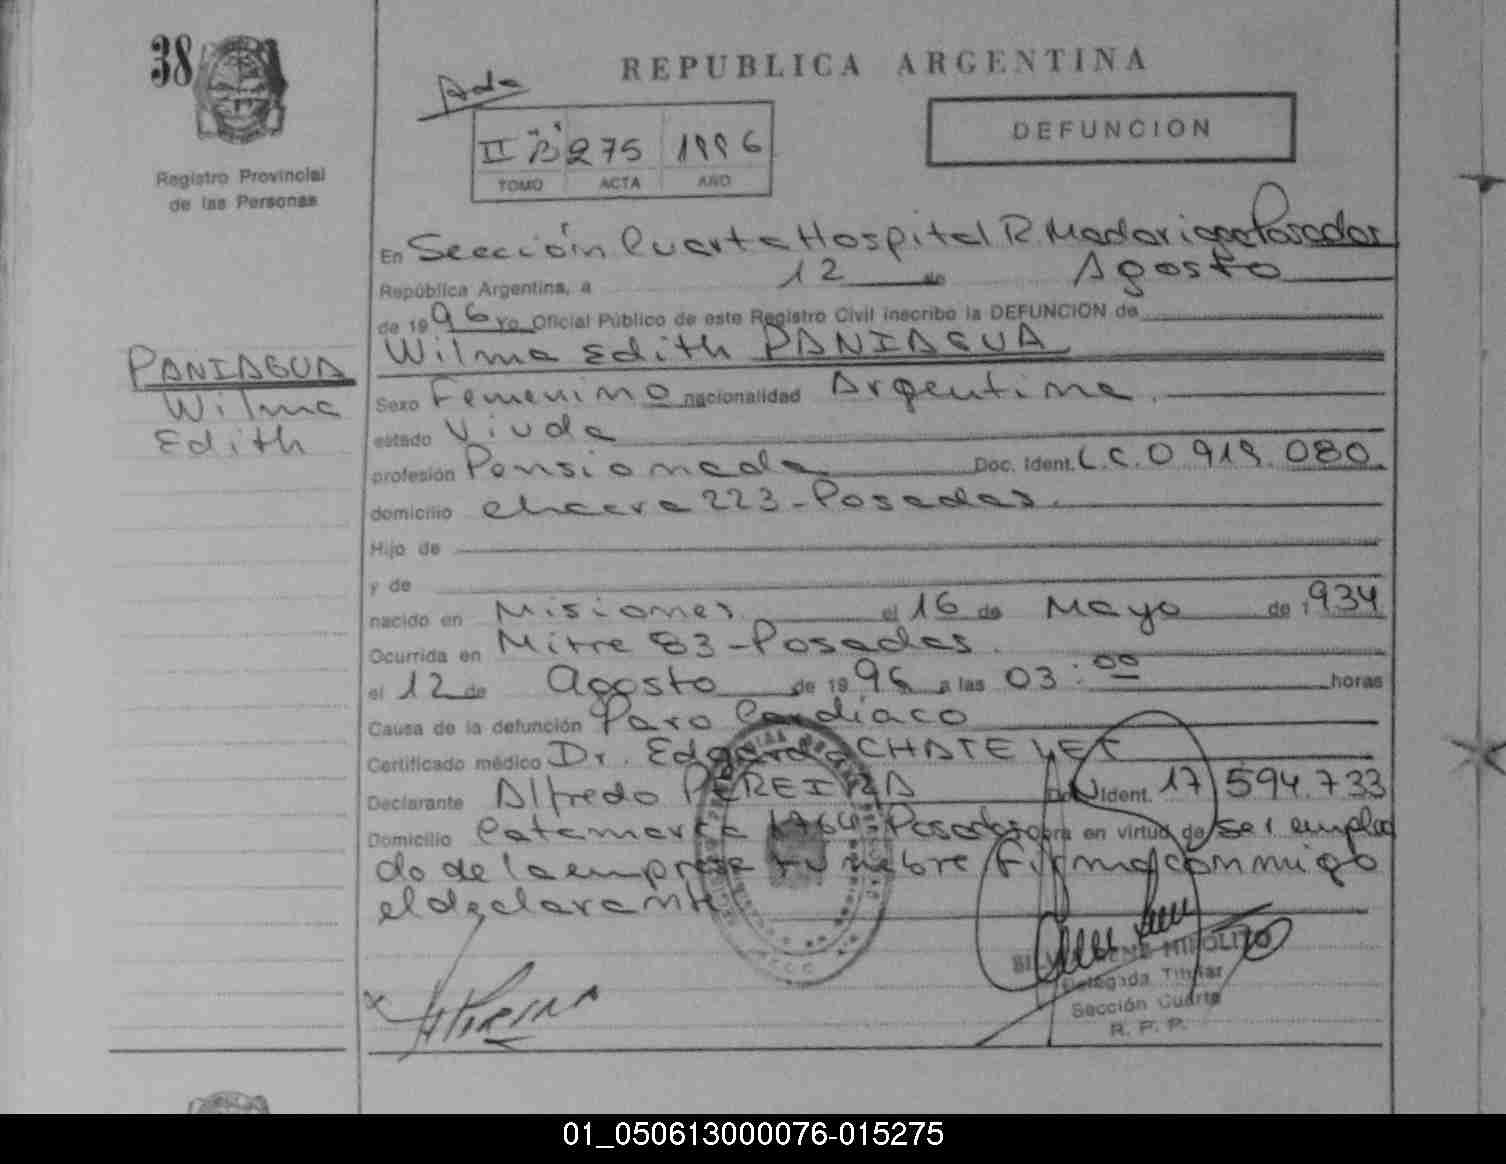 38
REPUBLICA ARGENTINA
Registro Provincial
de las Personas
II "B" 275 1996
TOMO ACTA AÑO
DEFUNCION
En Sección Cuarta Hospital R. Madariaga Posadas
República Argentina, a 12 de Agosto
de 1996 Yo Oficial Público de este Registro Civil inscribo la DEFUNCION de
Wilma Edith PANIAGUA
PANIAGUA
Wilma
Edith
Sexo Femenino nacionalidad Argentina
estado Viuda
profesión Pensionada Doc. Ident. L.C. 0.919.080
domicilio chacra 223 - Posadas.
Hijo de
y de
nacido en Misiones el 16 de Mayo de 1934
Ocurrida en Mitre 83 - Posadas.
el 12 de Agosto de 1996 a las 03:00 horas
Causa de la defunción Paro Cardíaco
Certificado médico Dr. Edgardo CHATELET
Declarante Alfredo PEREIRA Doc. Ident. 17.594.733
Domicilio Catamarca Posadas obra en virtud de ser emplea
do de la empresa funebre firma conmigo
el declarante
HIPOLITO
Delegada Titular
Sección Cuarta
R. P. P.
01_050613000076-015275